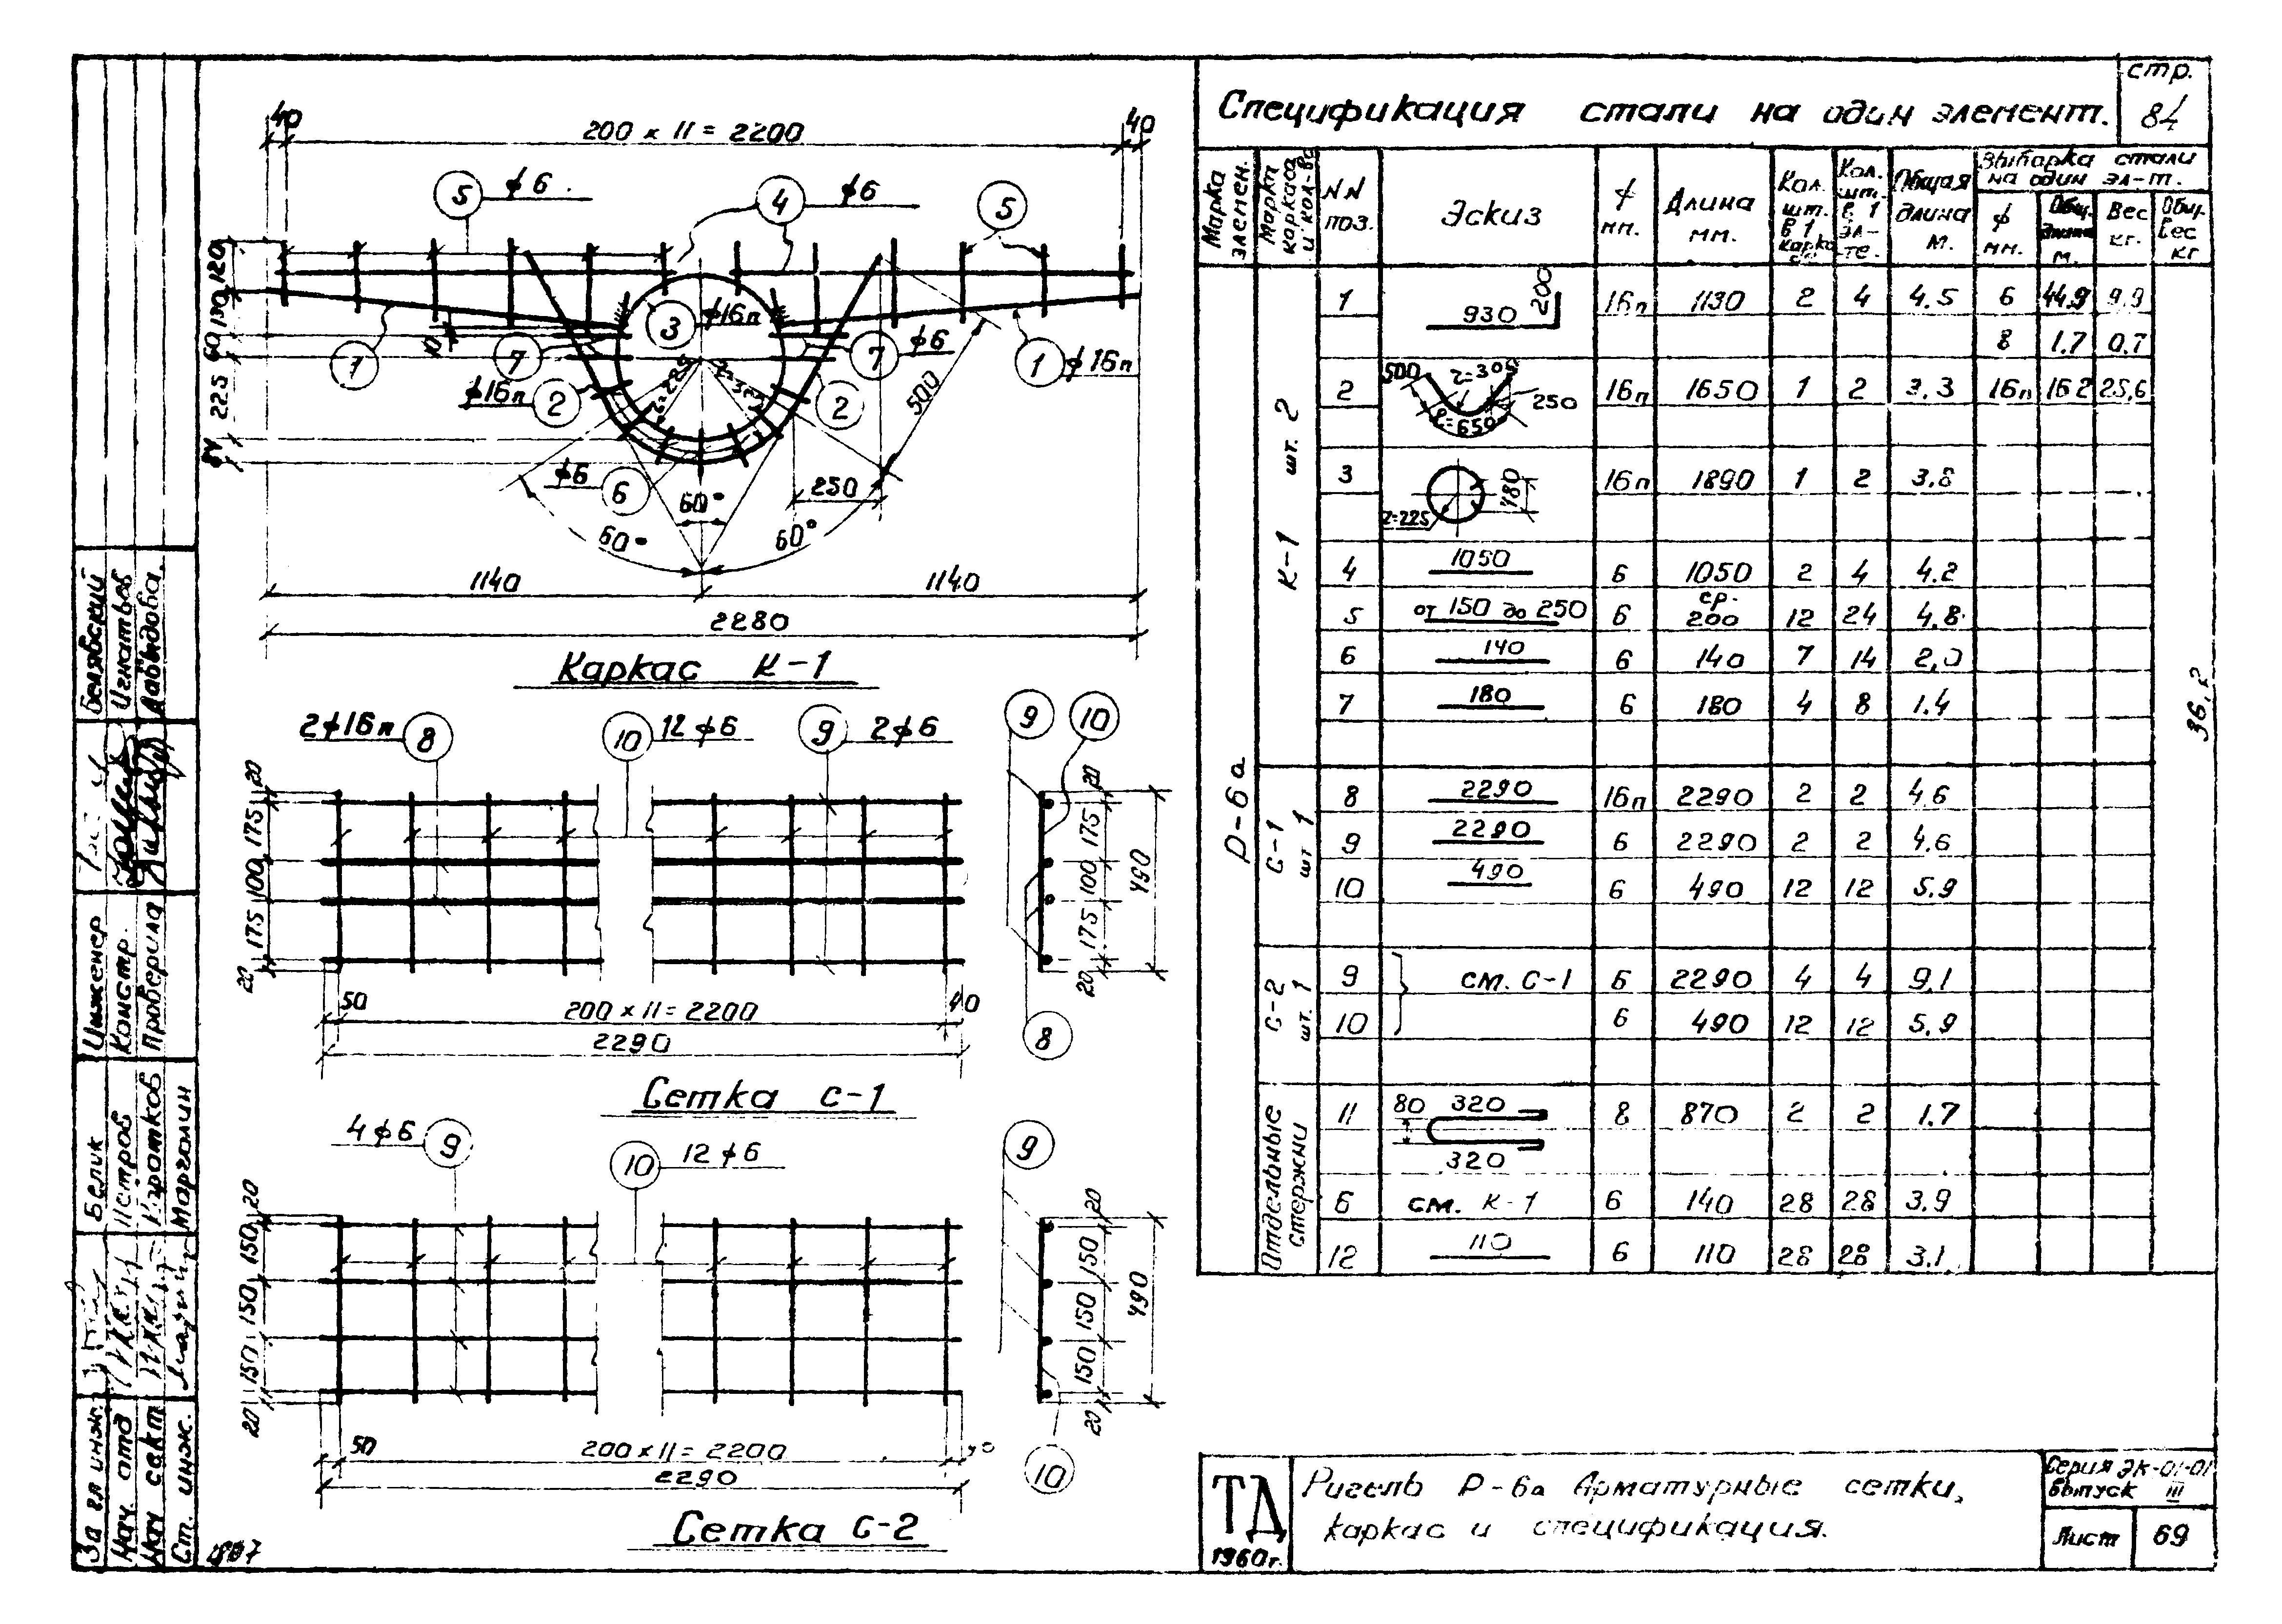 стр.
84
Спецификация стали на один элемент.
Марка элемен.
Марка каркаса и кол-во
NN поз.
Эскиз
ϕ мм.
Длина мм.
Кол. шт. в 1 каркасе
Кол. шт. в 1 эл-те.
Общая длина м.
Выборка стали на один эл-т.
ϕ мм.
Общ. длина м.
Вес кг.
Общ. вес кг
Р-6а
К-1 шт. 2
1 930 200 16п 1130 2 4 4.5 6 44.9 9.9
8 1.7 0.7
2 500 r=305 250 l=650 16п 1650 1 2 3.3 16п 16.2 25,6
3 r=225 480 16п 1890 1 2 3.8
4 1050 6 1050 2 4 4.2
5 от 150 до 250 6 ср. 200 12 24 4.8
6 140 6 140 7 14 2,0
7 180 6 180 4 8 1.4
36,2
С-1 шт 1
8 2290 16п 2290 2 2 4.6
9 2290 6 2290 2 2 4.6
10 490 6 490 12 12 5.9
С-2 шт. 1
9 см. С-1 6 2290 4 4 9,1
10 6 490 12 12 5.9
Отдельные стержни
11 80 320 320 8 870 2 2 1.7
6 см. К-1 6 140 28 28 3.9
12 110 6 110 28 28 3.1
40 200 x 11 = 2200 40
5 ϕ6
4 ϕ6
5
120
130
60
225
10
1
7
3 ϕ16п
7 ϕ6
1 ϕ16п
ϕ16п 2
r=225
2
500
ϕ6 6
60°
250
60°
60°
1140 1140
2280
Каркас К-1
2ϕ16п 8
10 12ϕ6
9 2ϕ6
9 10
20 175 100 175 20
20 175 100 175 20
490
50 200 x 11 = 2200 40
2290
8
Сетка С-1
4ϕ6 9
10 12ϕ6
9
20 150 150 150 20
20 150 150 150 20
490
50 200 x 11 = 2200
2290
10
Сетка С-2
Белявский
Игнатьев
Давыдова
Инженер
Констр.
Проверила
Белик
Марголин
За гл инж.
Нач. отд
Нач сект
Ст. инж.
ТД
1960г.
Ригель Р-6а Арматурные сетки,
каркас и спецификация.
Серия ЭК-01-01
Выпуск III
Лист 69